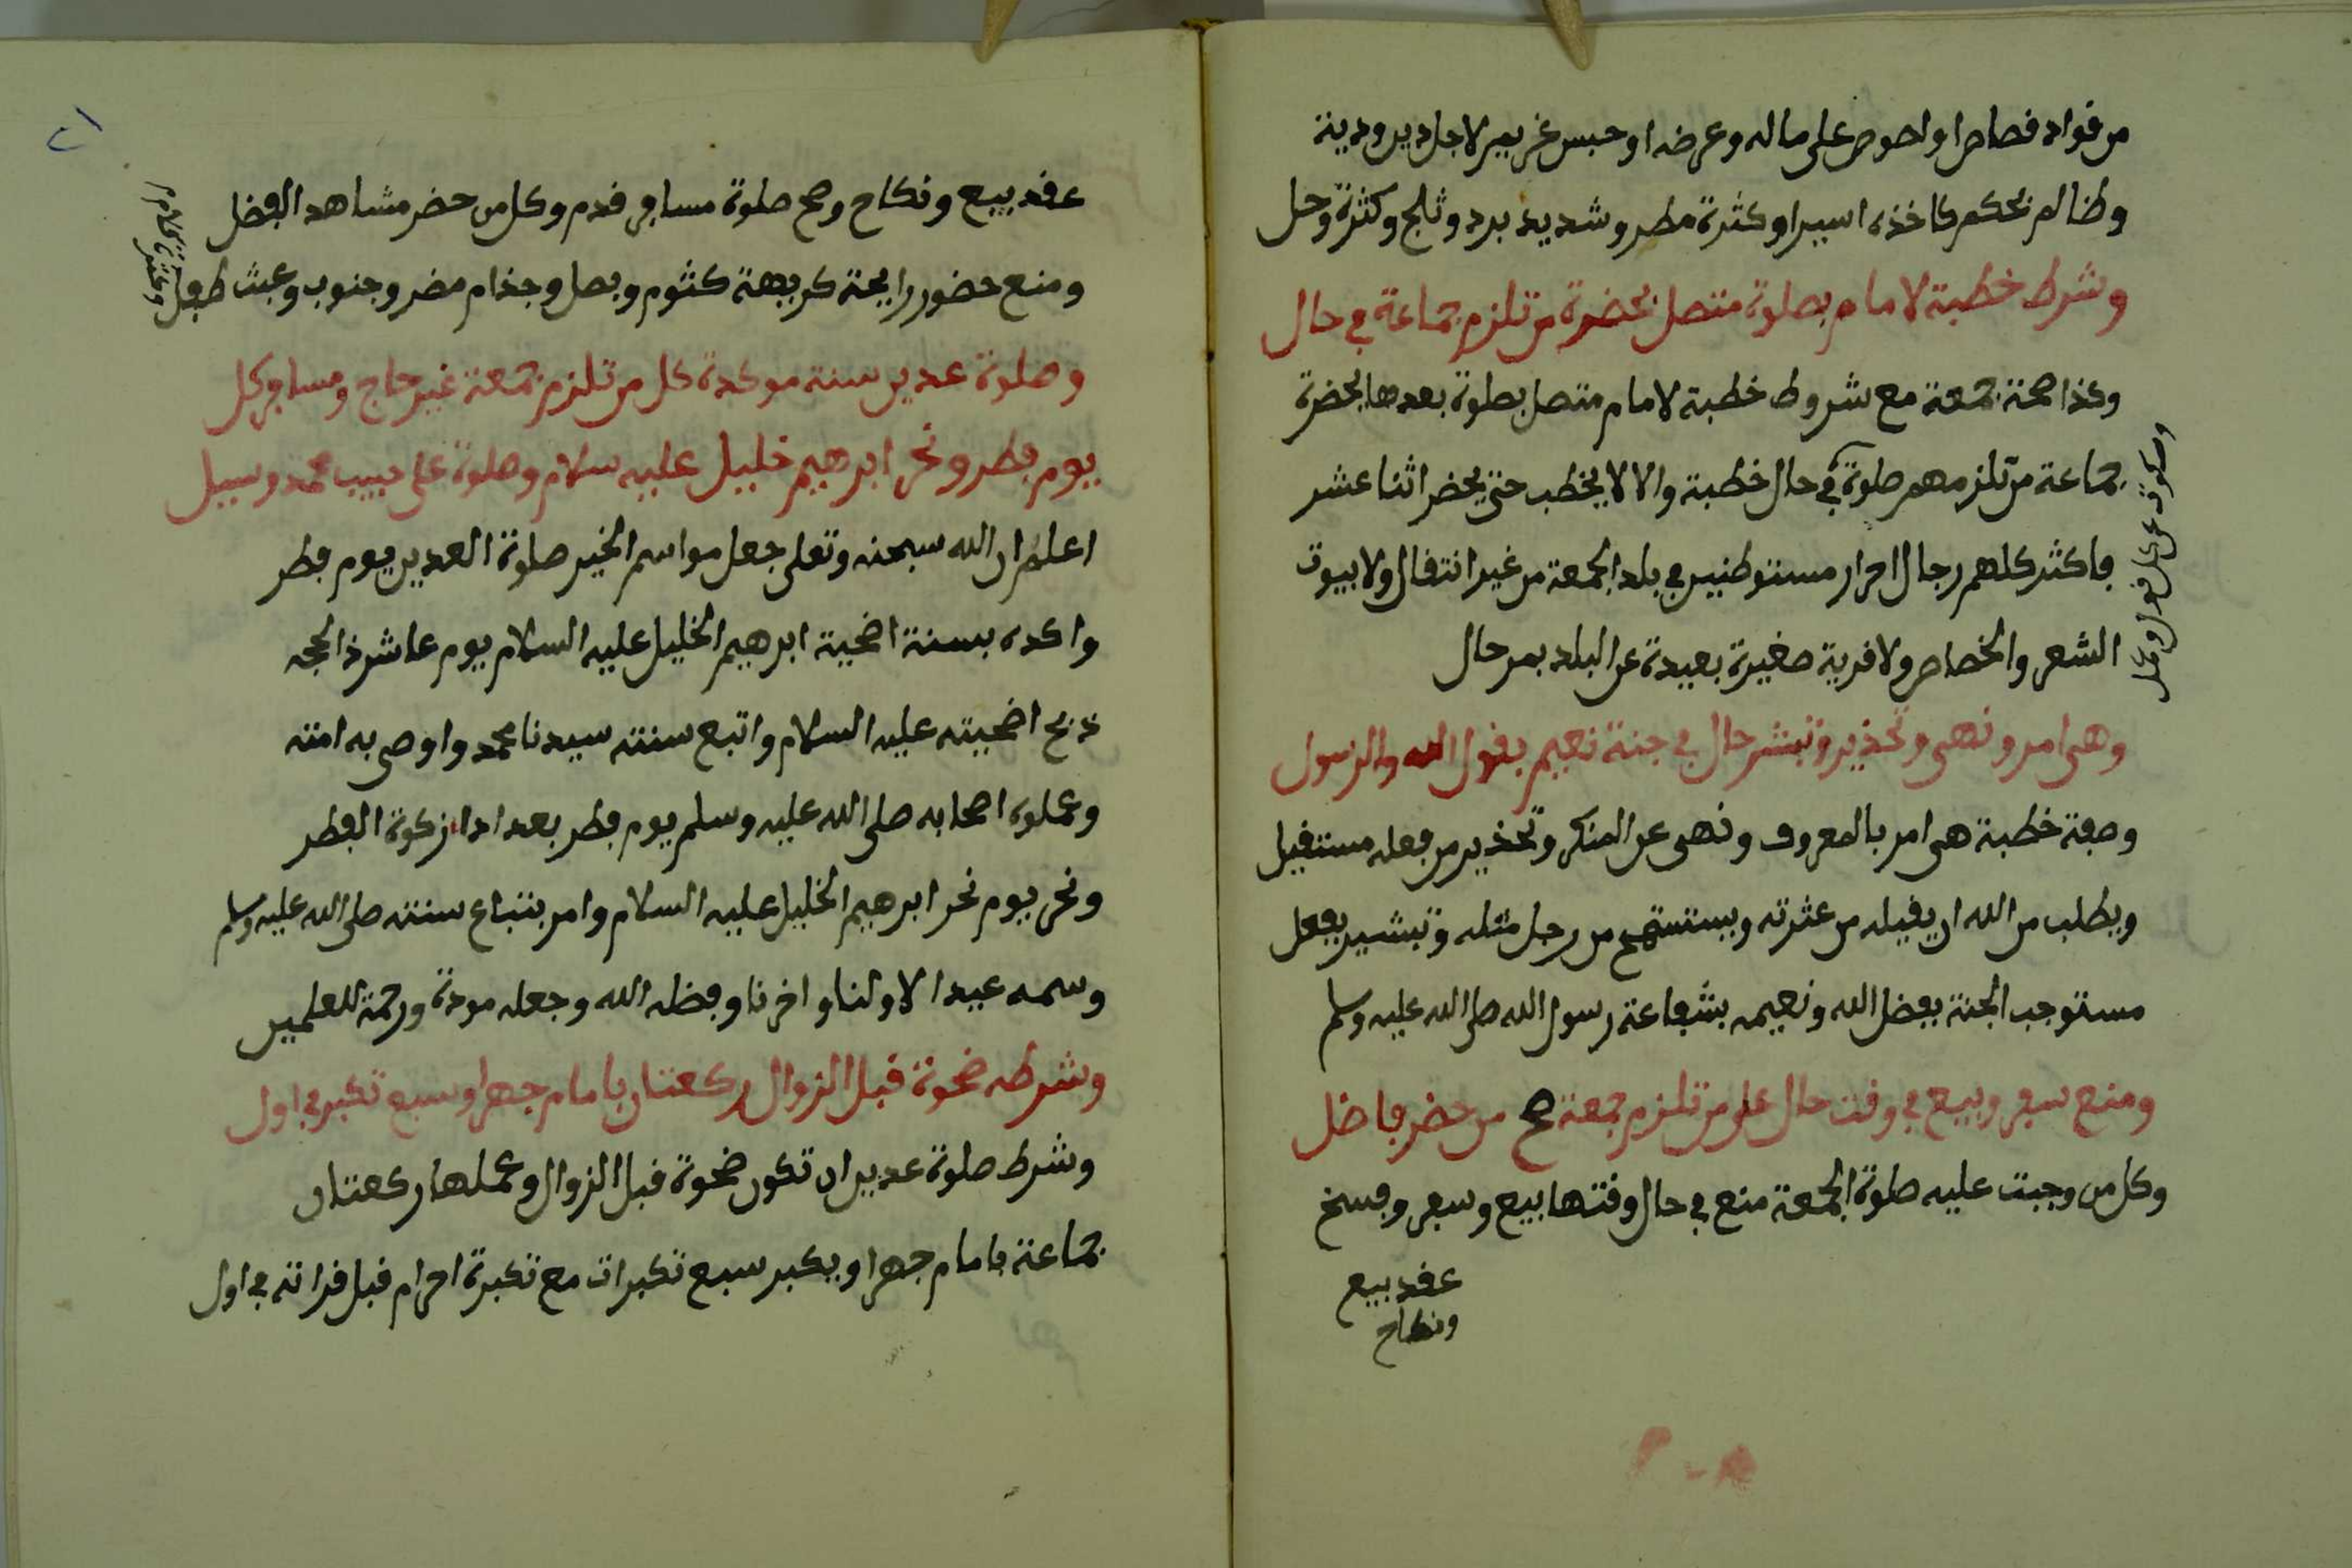 من قواد قصاص او لصوص على ماله وعرضه او حبس غريم لاجل دين ودينة
وظالم بحكم كاخذه اسيرا وكثرة مطر وشديد برد وثلج وكثرة وحل
وشرط خطبة لامام بصلوة متصل بحضرة من تلزم جماعة في حال
وكذا صحة جمعة مع شروط خطبة لامام متصل بصلوة بعدها بحضرة
جماعة من تلزمهم صلوة في حال خطبة والا لا يخطب حتى يحضر اثنا عشر
فاكثر كلهم رجال احرار مستوطنين في بلد الجمعة من غير انتقال ولا بيوت
الشعر والخصاص ولا قرية صغيرة بعيدة عن البلد بمرحال
وهي امر ونهي وتحذير وتبشر حال في جنة نعيم بقول الله والرسول
وصفة خطبة هي امر بالمعروف ونهي عن المنكر وتحذير من فعله مستقيل
ويطلب من الله ان يقيله من عثرته ويستسمح من رجل مثله وتبشير بفعل
مستوجب الجنة بفضل الله ونعيمه بشفاعة رسول الله صلى الله عليه وسلم
ومنع سفر وبيع في وقت حال على من تلزم جمعة صح من حضر فاضل
وكل من وجبت عليه صلوة الجمعة منع في حال وقتها بيع وسفر وفسخ
عقد بيع
ونكاح
عقد بيع ونكاح وصح صلوة مسافر قدم وكل من حضر مشاهد الفضل
ومنع حضور رايحة كريهة كثوم وبصل وجذام مضر وجنوب وعبث طفل
وصلوة عدين سنة موكدة كل من تلزم جمعة غير حاج ومسافر كل
يوم فطر ونحر ابرهيم خليل عليه سلام وصلوة على حبيب محمد وسيل
اعلم ان الله سبحنه وتعلى جعل مواسم الخير صلوة العدين يوم فطر
واكده بسنة اضحية ابرهيم الخليل عليه السلام يوم عاشر ذا لحجه
ذبح اضحيته عليه السلام واتبع سنته سيدنا محمد واوصى به امته
وعملوه اصحابه صلى الله عليه وسلم يوم فطر بعد اداء زكوة الفطر
ونحر يوم نحر ابرهيم الخليل عليه السلام وامر بتباع سنته صلى الله عليه وسلم
وسمه عيدا لاولنا واخرنا وفضله الله وجعله مودة ورحمة للعلمين
وشرطه ضحوة قبل الزوال ركعتان بامام جهرا وسبع تكبر في اول
وشرط صلوة عدين ان تكون ضحوة قبل الزوال وعملها ركعتان
جماعة بامام جهرا ويكبر سبع تكبرات مع تكبرة احرام قبل قراته في اول